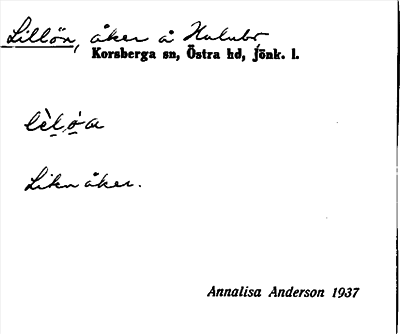 Lillön, åker å
Korsberga sn, Östra hd, Jönk. l.
Liten åker.
Annalisa Anderson 1937